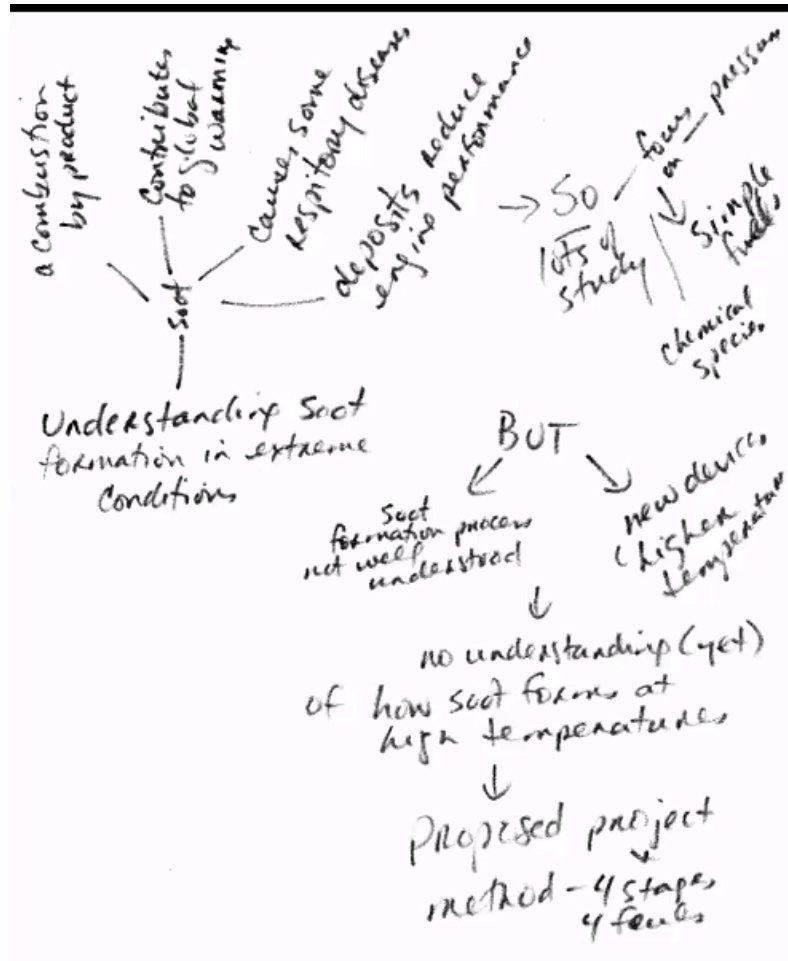 a combustion
by product
Contributes
to global
warming
Causes some
respitory diseases
deposits reduce
engine performance
Soot
Understanding Soot
formation in extreme
Conditions
→ So
lots of
study
focus
on
pressure
simple
fuels
chemical
species
BUT
Soot
formation process
not well
understood
new devices
(higher
temperature
no understanding (yet)
of how soot forms at
high temperatures
Proposed project
method - 4 stages
4 feuls